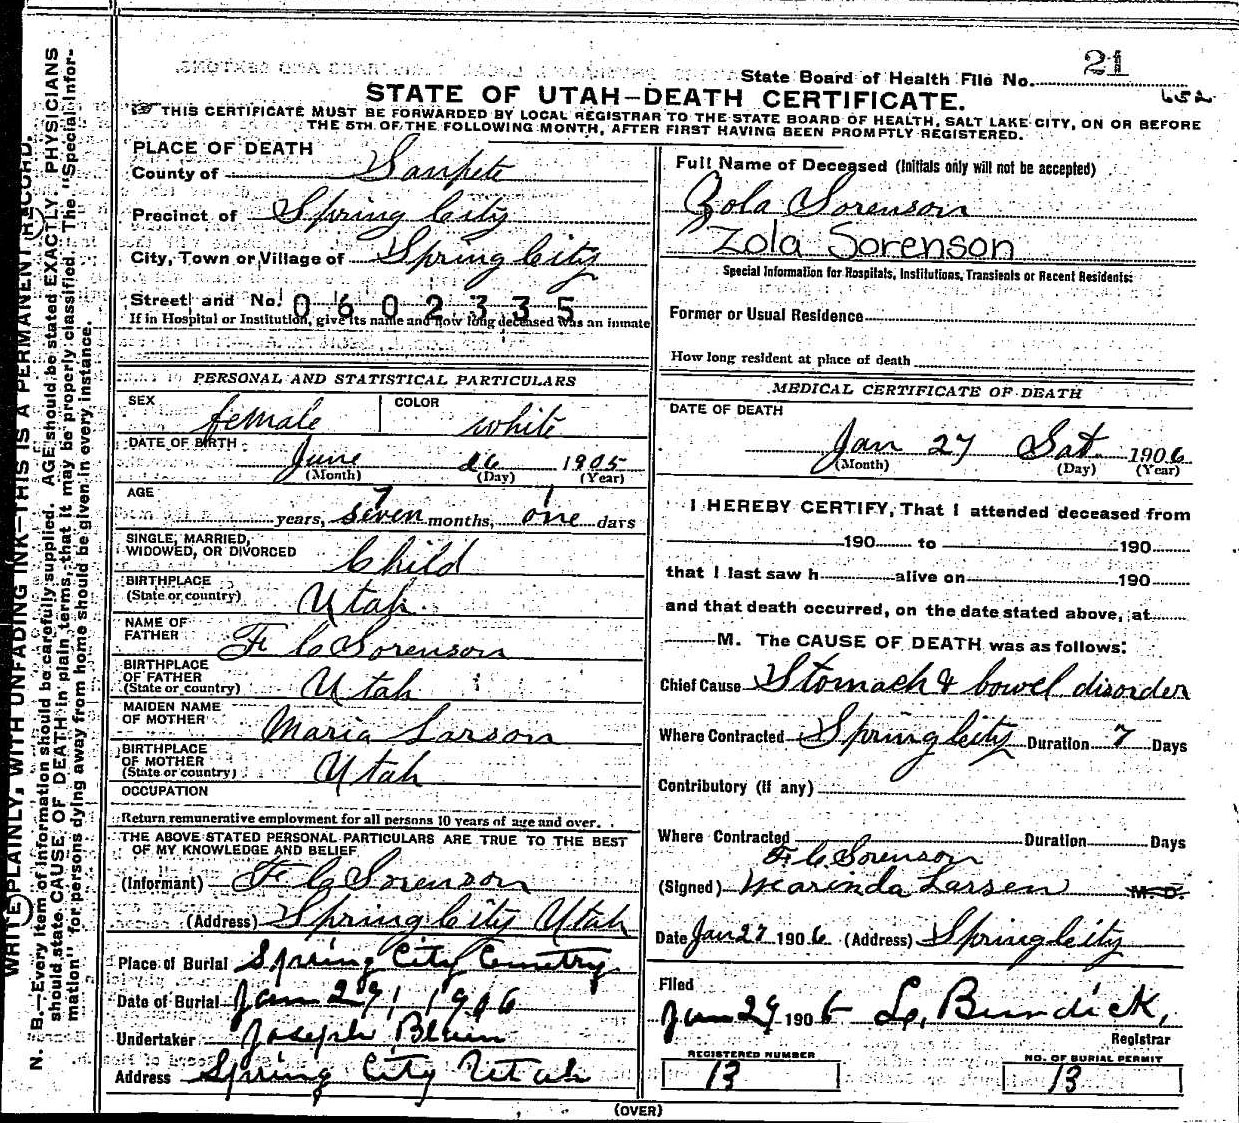 State Board of Health File No. 21
652
STATE OF UTAH—DEATH CERTIFICATE.
THIS CERTIFICATE MUST BE FORWARDED BY LOCAL REGISTRAR TO THE STATE BOARD OF HEALTH, SALT LAKE CITY, ON OR BEFORE
THE 5TH OF THE FOLLOWING MONTH, AFTER FIRST HAVING BEEN PROMPTLY REGISTERED.
PLACE OF DEATH
County of Sanpete
Precinct of Spring City
City, Town or Village of Spring City
Street and No. 0602335
If in Hospital or Institution, give its name and how long deceased was an inmate
PERSONAL AND STATISTICAL PARTICULARS
SEX female COLOR white
DATE OF BIRTH June 26 1905
(Month) (Day) (Year)
AGE 7 1
years, seven months, one days
SINGLE, MARRIED,
WIDOWED, OR DIVORCED Child
BIRTHPLACE
(State or country) Utah
NAME OF
FATHER F C Sorenson
BIRTHPLACE
OF FATHER
(State or country) Utah
MAIDEN NAME
OF MOTHER Maria Larson
BIRTHPLACE
OF MOTHER
(State or country) Utah
OCCUPATION
Return remunerative employment for all persons 10 years of age and over.
THE ABOVE STATED PERSONAL PARTICULARS ARE TRUE TO THE BEST
OF MY KNOWLEDGE AND BELIEF
(Informant) F C Sorenson
(Address) Spring City Utah
Place of Burial Spring City Cemetry
Date of Burial Jan 29, 1906
Undertaker Joseph Blain
Address Spring City Utah
Full Name of Deceased (Initials only will not be accepted)
Zola Sorenson
Zola Sorenson
Special Information for Hospitals, Institutions, Transients or Recent Residents:
Former or Usual Residence
How long resident at place of death
MEDICAL CERTIFICATE OF DEATH
DATE OF DEATH
Jan 27 Sat. 1906
(Month) (Day) (Year)
I HEREBY CERTIFY, That I attended deceased from
190 to 190
that I last saw h alive on 190
and that death occurred, on the date stated above, at
M. The CAUSE OF DEATH was as follows:
Chief Cause Stomach & bowel disorder
Where Contracted Spring City Duration 7 Days
Contributory (if any)
Where Contracted Duration Days
F. C Sorenson
(Signed) Marinda Larsen M. D.
Date Jan 27 1906 (Address) Spring City
Filed
Jan 29 1906 L. Bundick,
Registrar
REGISTERED NUMBER
13
NO. OF BURIAL PERMIT
13
(OVER)
WRITE PLAINLY, WITH UNFADING INK—THIS IS A PERMANENT RECORD.
N. B.—Every item of information should be carefully supplied. AGE should be stated EXACTLY. PHYSICIANS
should state CAUSE OF DEATH in plain terms, that it may be properly classified. The "Special Infor-
mation" for persons dying away from home should be given in every instance.